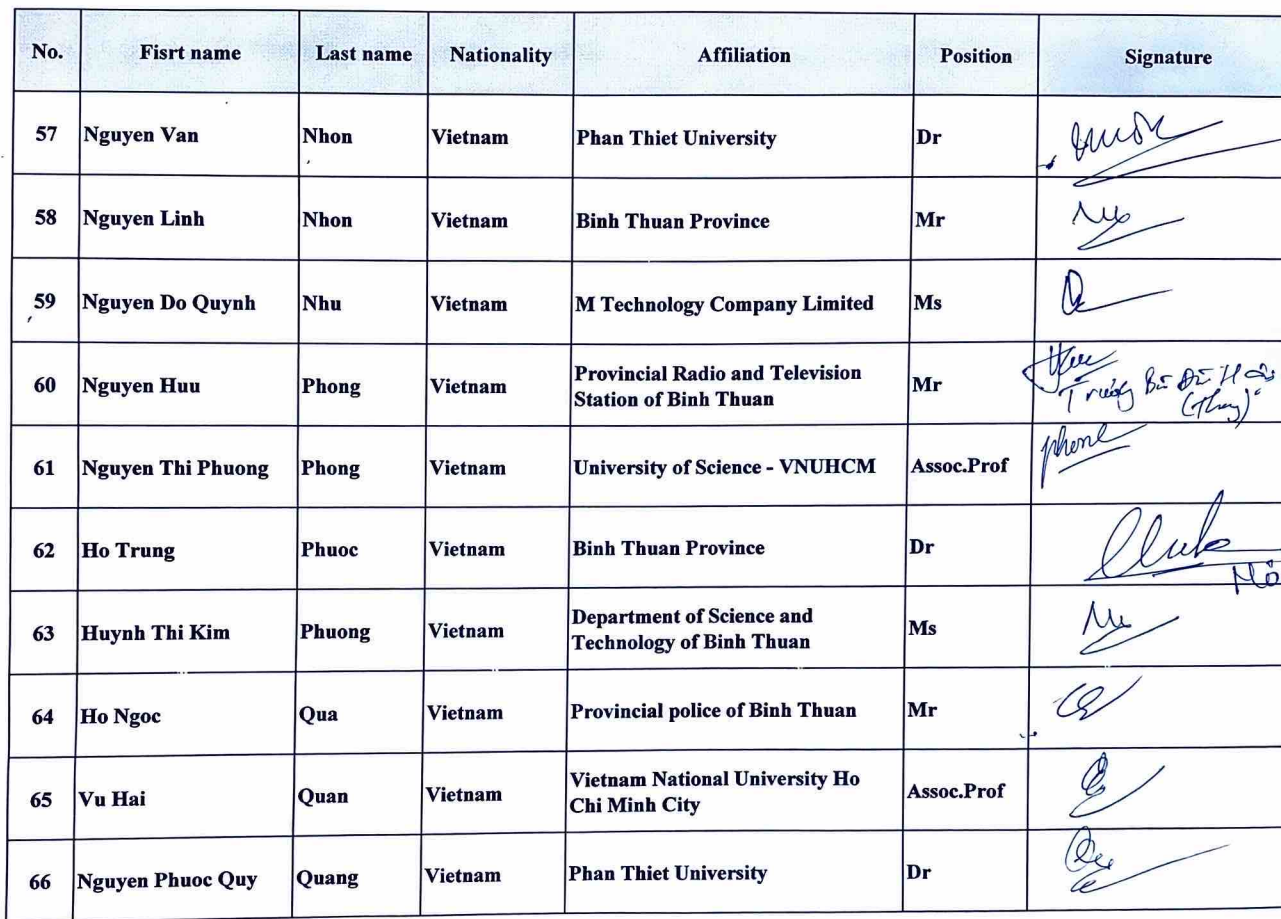 No. Fisrt name Last name Nationality Affiliation Position Signature
57 Nguyen Van Nhon Vietnam Phan Thiet University Dr
58 Nguyen Linh Nhon Vietnam Binh Thuan Province Mr
59 Nguyen Do Quynh Nhu Vietnam M Technology Company Limited Ms
60 Nguyen Huu Phong Vietnam Provincial Radio and Television
Station of Binh Thuan Mr
(Thay)
61 Nguyen Thi Phuong Phong Vietnam University of Science - VNUHCM Assoc.Prof
62 Ho Trung Phuoc Vietnam Binh Thuan Province Dr
63 Huynh Thi Kim Phuong Vietnam Department of Science and
Technology of Binh Thuan Ms
64 Ho Ngoc Qua Vietnam Provincial police of Binh Thuan Mr
65 Vu Hai Quan Vietnam Vietnam National University Ho
Chi Minh City Assoc.Prof
66 Nguyen Phuoc Quy Quang Vietnam Phan Thiet University Dr